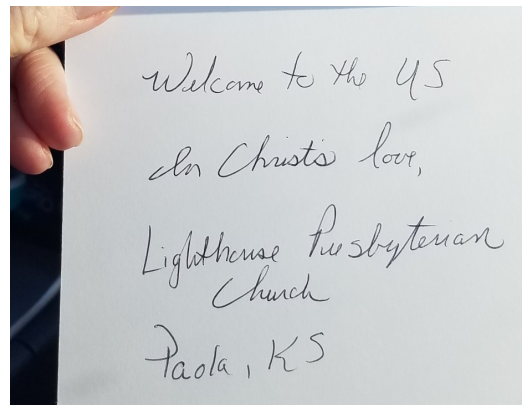 Welcome to the US
In Christ's love,
Lighthouse Presbyterian
Church
Paola, KS